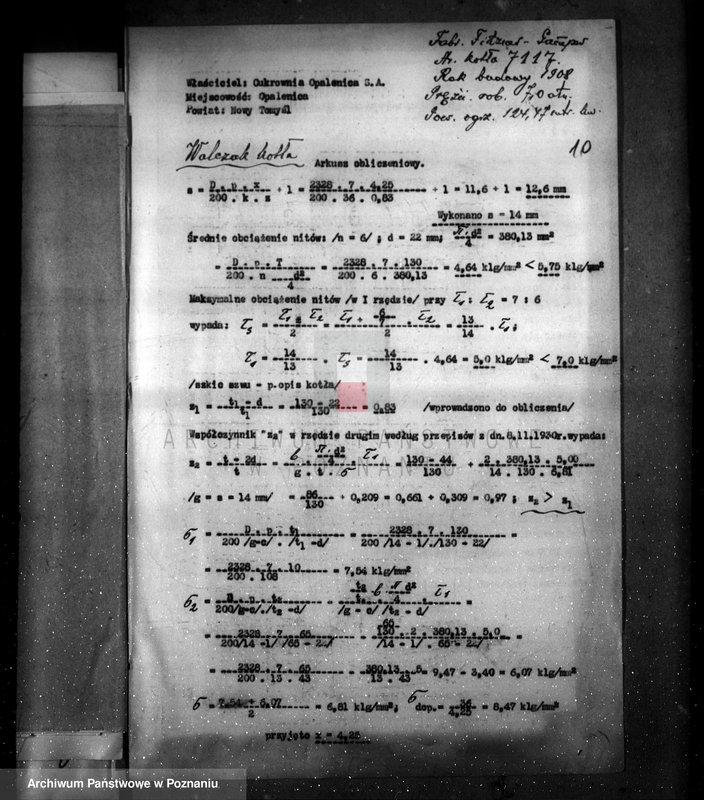 Nr. kotła 7117.
Rok budowy 1908
Właściciel: Cukrownia Opalenica S.A.
Miejscowość: Opalenica
Powiat: Nowy Tomyśl
10
Walczak kotła
Arkusz obliczeniowy.
s = D . p . x / 200 . k . z + 1 = 2328 . 7 . 4,25 / 200 . 36 . 0,83 + 1 = 11,6 + 1 = 12,6 mm
Wykonano s = 14 mm
Średnie obciążenie nitów: /n = 6/ ; d = 22 mm; π . d² / 4 = 380,13 mm²
= D . p . T / 200 . n d² / 4 = 2328 . 7 . 130 / 200 . 6 . 380,13 = 4,64 klg/mm² < 5,75 klg/mm²
Maksymalne obciążenie nitów /w I rzędzie/ przy τ₁ : τ₂ = 7 : 6
wypada: = 13 / 14 . τ₁ ;
τ₁ = 14 / 13 . τₛ = 14 / 13 . 4,64 = 5,0 klg/mm² < 7,0 klg/mm²
/szkic szwu - p.opis kotła/
z₁ = t₁ - d / t₁ = 130 - 22 / 130 = 0,83 /wprowadzono do obliczenia/
Współczynnik "z₂" w rzędzie drugim według przepisów z dn.8.11.1930r.wypada:
z₂ = t - 2d / t = 130 - 44 / 130 + 2 . 380,13 . 5,00 / 14 . 130 . 6,81
/g = s = 14 mm/ = 86 / 130 + 0,209 = 0,661 + 0,309 = 0,97 ; z₂ > z₁
σ₁ = D . p . t₁ / 200 /g-c/ . /t₁ -d/ = 2328 . 7 . 130 / 200 /14 - 1/./130 - 22/ =
= 2328 . 7 . 10 / 200 . 108 = 7,54 klg/mm²
σ₂ = D . p . t₂ / 200/g-c/./t₂ -d/ - /g - c/ /t₂ - d/ =
= 2328 . 7 . 65 / 200/14 -1/ /65 - 22/ = 130 . 2 . 380,13 . 5,0 / /14 - 1/ . 65 - 22/ =
= 2328 . 7 . 65 / 200 . 13 . 43 - 380,13 . 5 / 13 . 43 = 9,47 - 3,40 = 6,07 klg/mm²
σ = 7,54 + 6,07 / 2 = 6,81 klg/mm²; σ dop.= 36 / 4,25 = 8,47 klg/mm²
przyjęto x = 4,25
ARCHIWUM PAŃSTWOWE
W POZNANIU
Archiwum Państwowe w Poznaniu